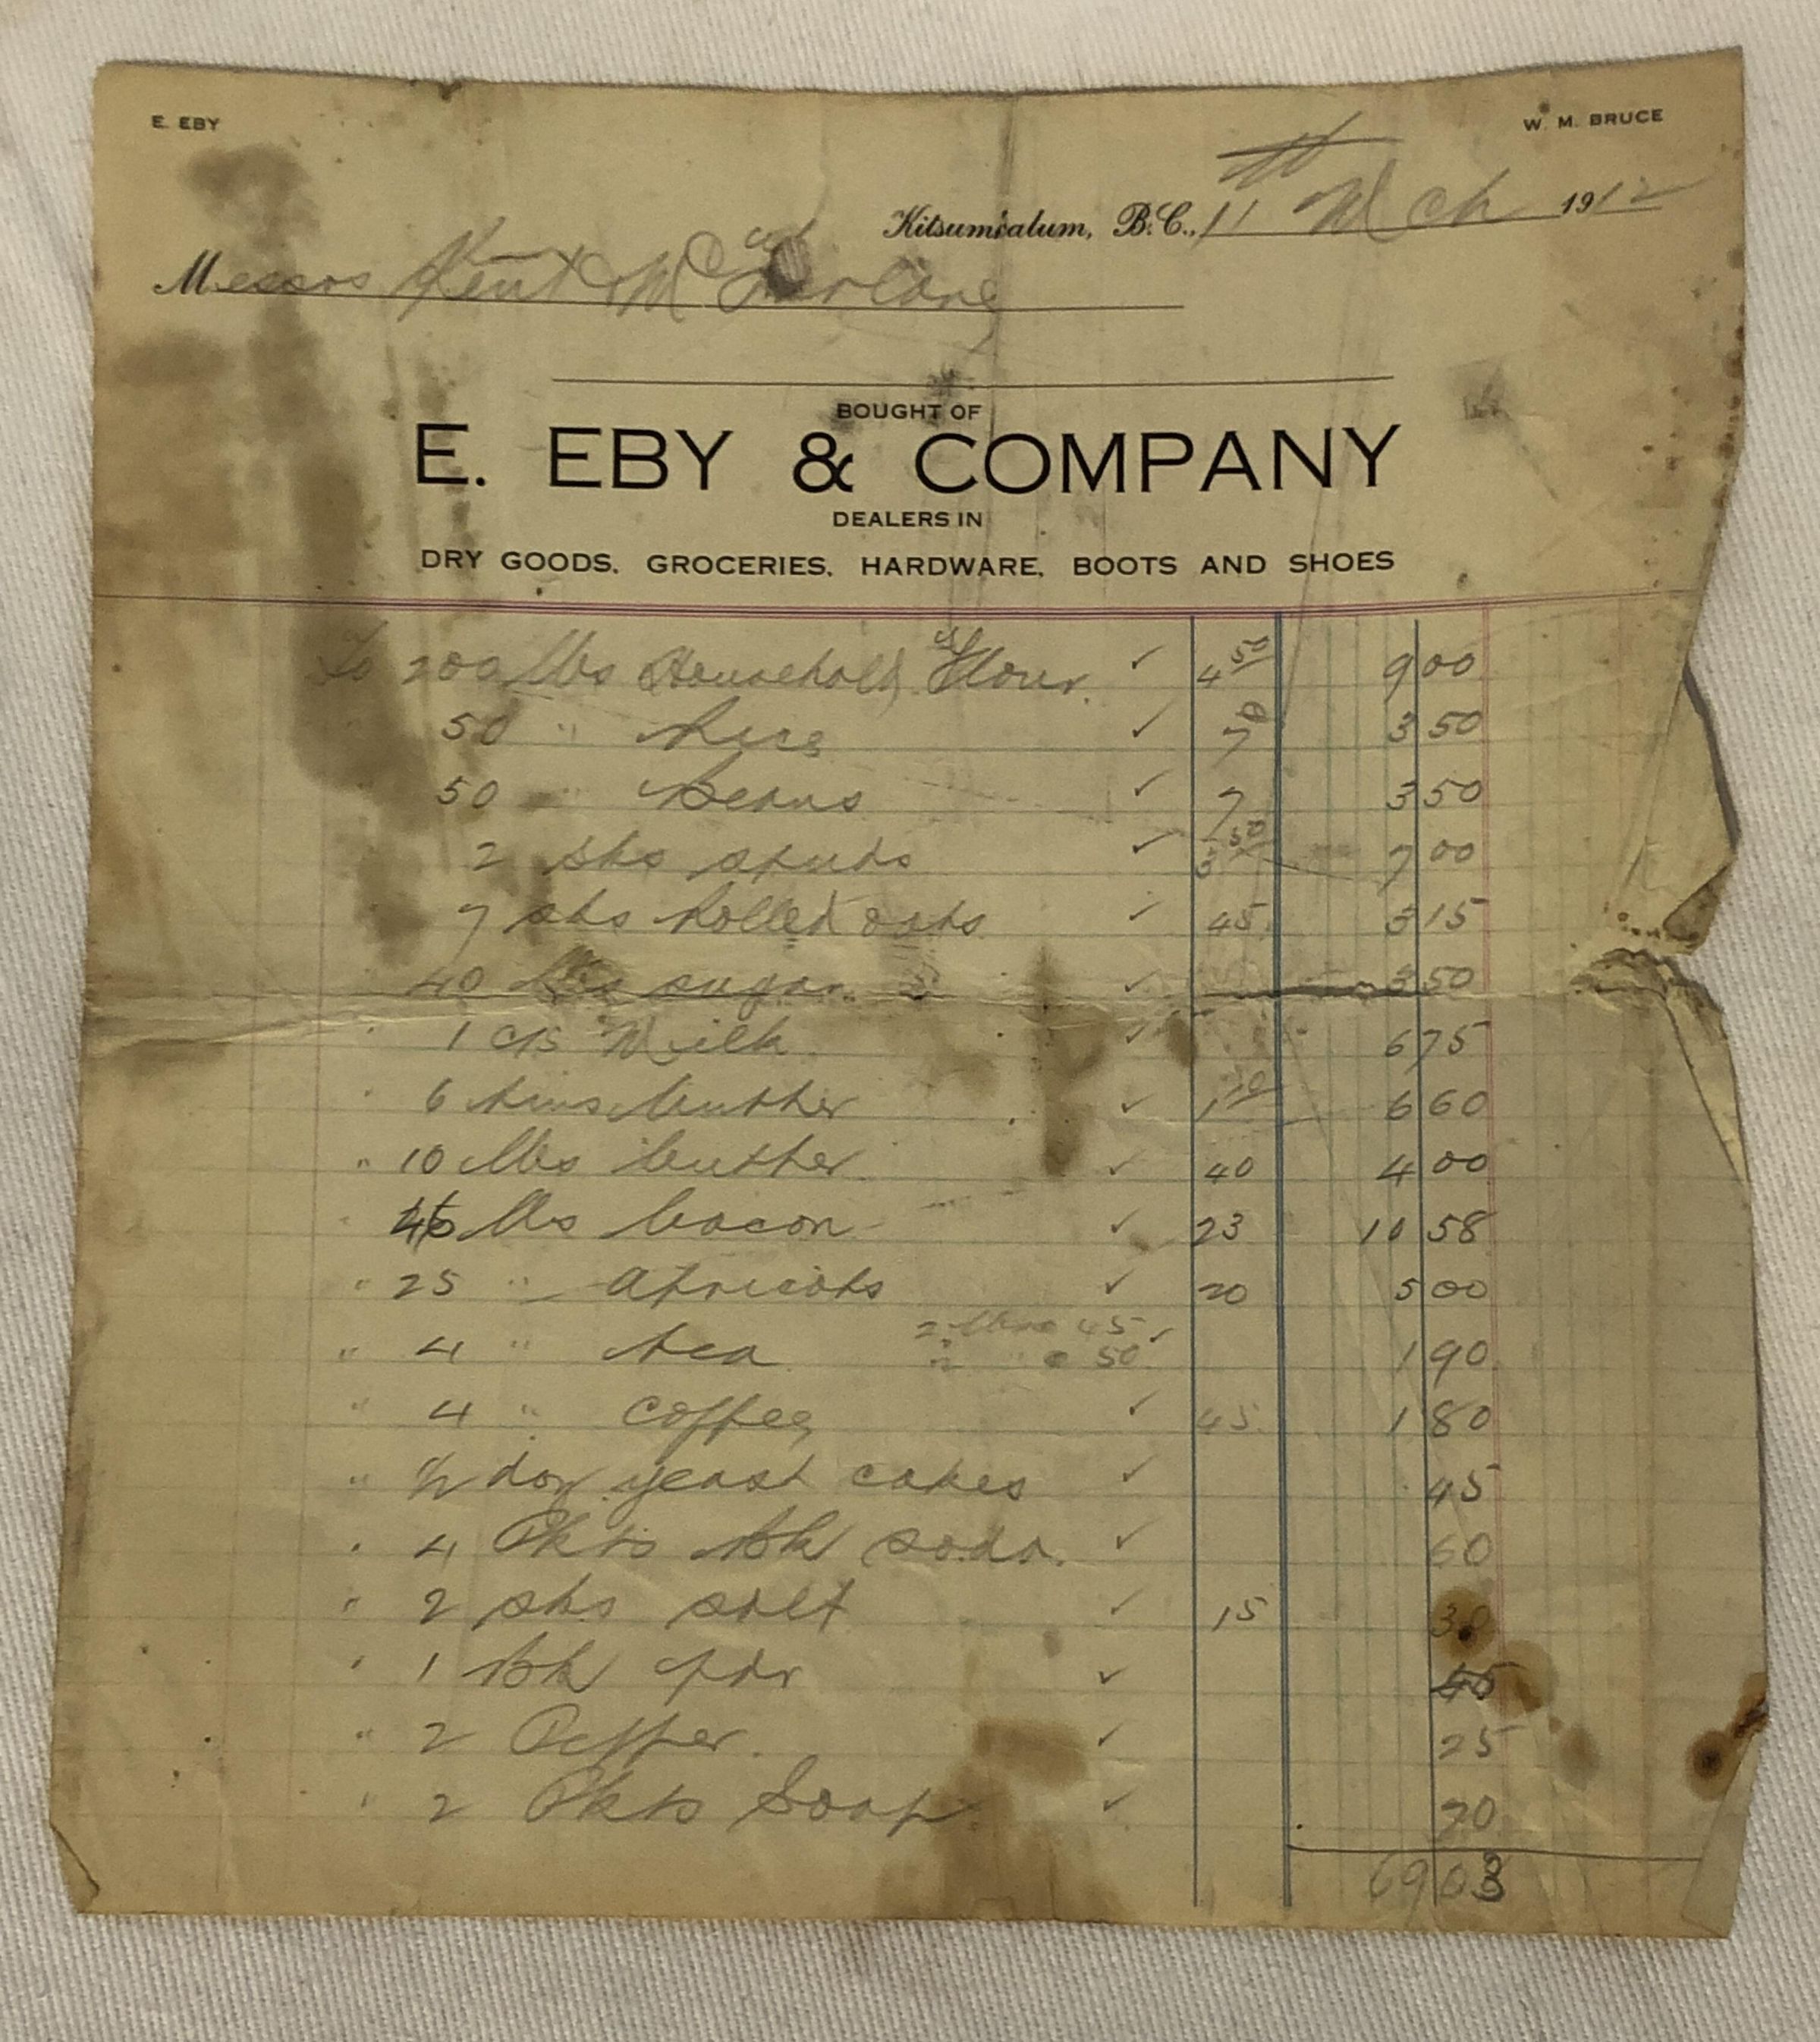 E. EBY
W. M. BRUCE
Kitsumcalum, B.C., 11th Mch 1912
Messrs Kent & McFarlane
BOUGHT OF
E. EBY & COMPANY
DEALERS IN
DRY GOODS, GROCERIES, HARDWARE, BOOTS AND SHOES
To 200 lbs Household Flour ✓ 4 50 9 00
50 " Rice ✓ 7 3 50
50 " Beans ✓ 7 3 50
2 sks spuds ✓ 3 50 7 00
7 sks Rolled oats ✓ 45 3 15
40 lbs sugar ✓ 3 50
" 1 c/s Milk ✓ 6 75
" 6 tins butter ✓ 1 10 6 60
" 10 lbs butter ✓ 40 4 00
" 46 lbs bacon ✓ 23 10 58
" 25 " Apricots ✓ 20 5 00
2 lbs @ 45
" 4 " tea " @ 50 ✓ 1 90
" 4 " coffee ✓ 45 1 80
" 1/2 doz yeast cakes ✓ 45
" 4 Pkts Bk soda ✓ 60
" 2 sks salt ✓ 15 30
" 1 Bk pdr ✓
" 2 Pepper ✓ 25
" 2 Pkts Soap ✓ 70
69 03